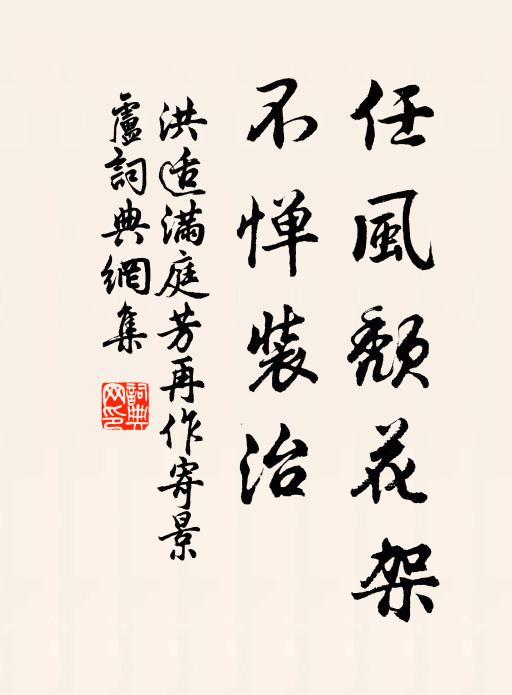 任風頽花架
不惮裝治
洪适满庭芳再作寄景
盧詞典網集
詞典
网印